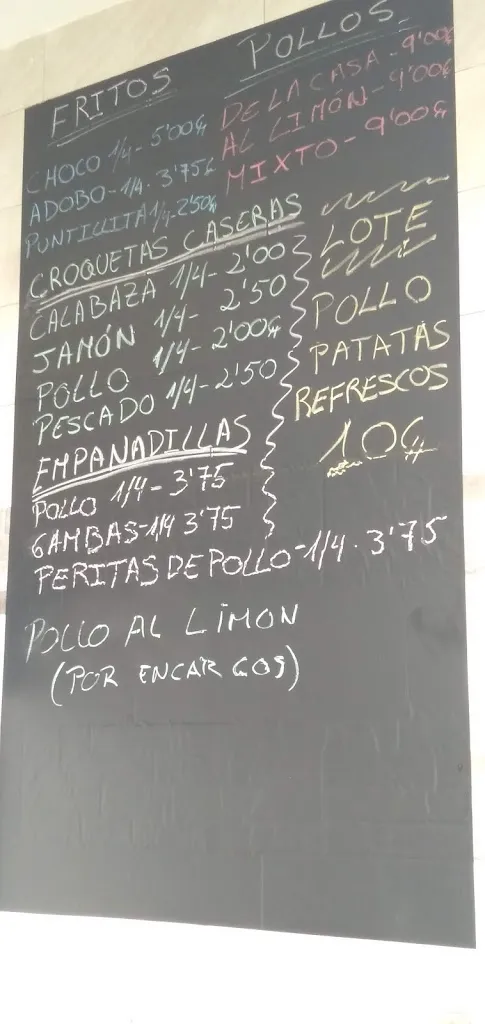 FRITOS
CHOCO 1/4- 5'00€
ADOBO-1/4- 3'75€
PUNTILLITA 1/4-2'50€
POLLOS
DE LA CASA-9'00€
AL LIMÓN-9'00€
MIXTO-9'00€
CROQUETAS CASERAS
CALABAZA 1/4-2'00
JAMÓN 1/4- 2'50
POLLO 1/4-2'00€
PESCADO 1/4-2'50
LOTE
POLLO
PATATAS
REFRESCOS
10€
EMPANADILLAS
POLLO 1/4-3'75
GAMBAS-1/4 3'75
PERITAS DE POLLO-1/4. 3'75
POLLO AL LIMON
(POR ENCARGOS)